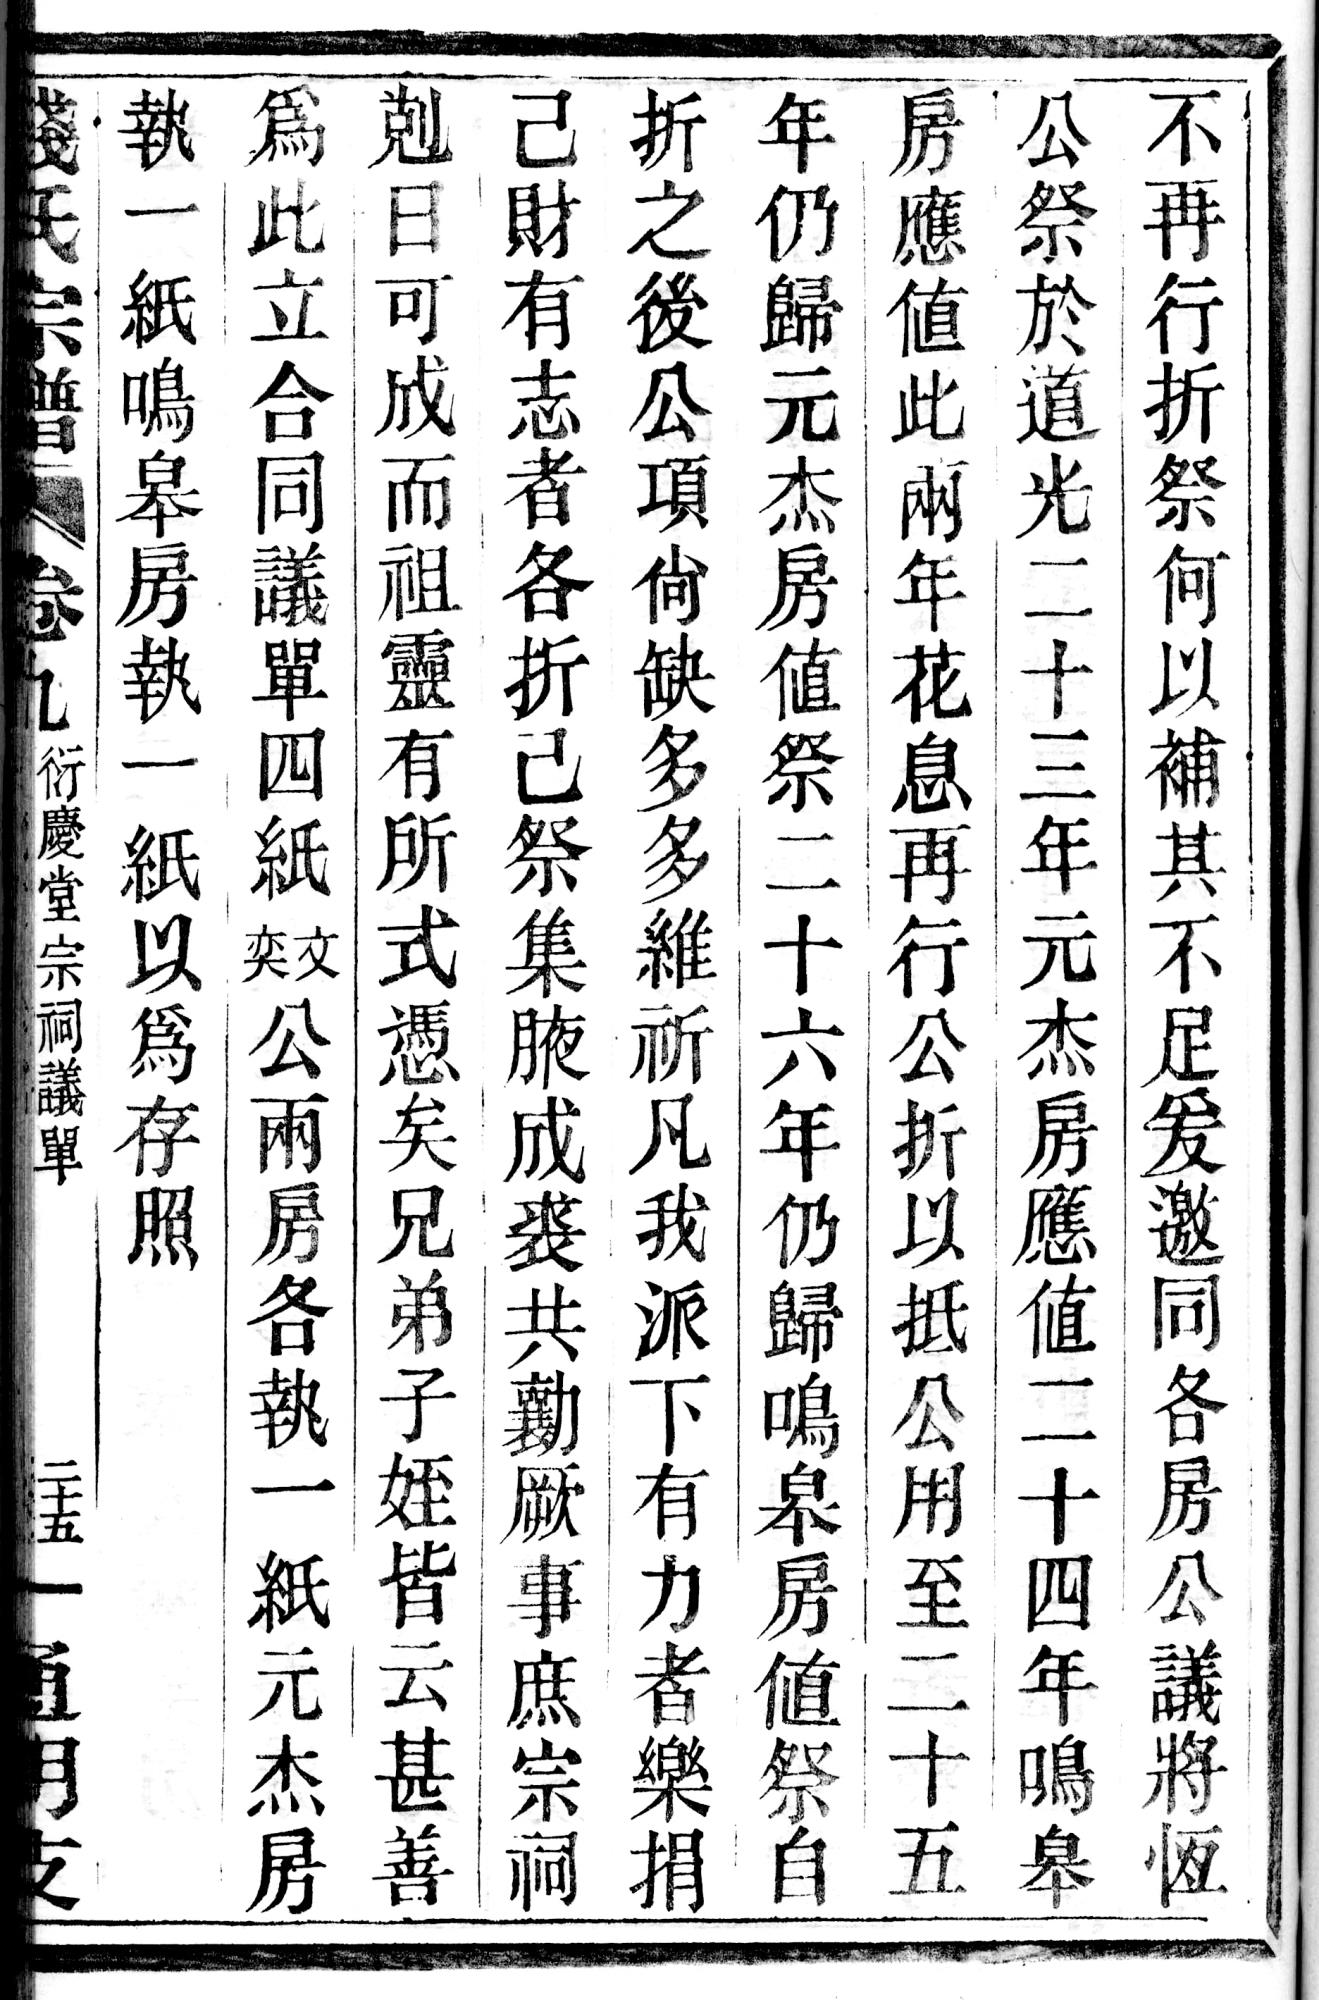 不再行折祭何以補其不足爰邀同各房公議將恆
公祭於道光二十三年元杰房應值二十四年鳴皋
房應值此兩年花息再行公折以抵公用至二十五
年仍歸元杰房值祭二十六年仍歸鳴皋房值祭自
折之後公項尙缺多多維祈凡我派下有力者樂捐
己財有志者各折己祭集腋成裘共勷厥事庶宗祠
剋日可成而祖靈有所式憑矣兄弟子姪皆云甚善
爲此立合同議單四紙文奕公兩房各執一紙元杰房
執一紙鳴皋房執一紙以爲存照
錢氏宗譜 卷九 衍慶堂宗祠議單 二十五 通明支